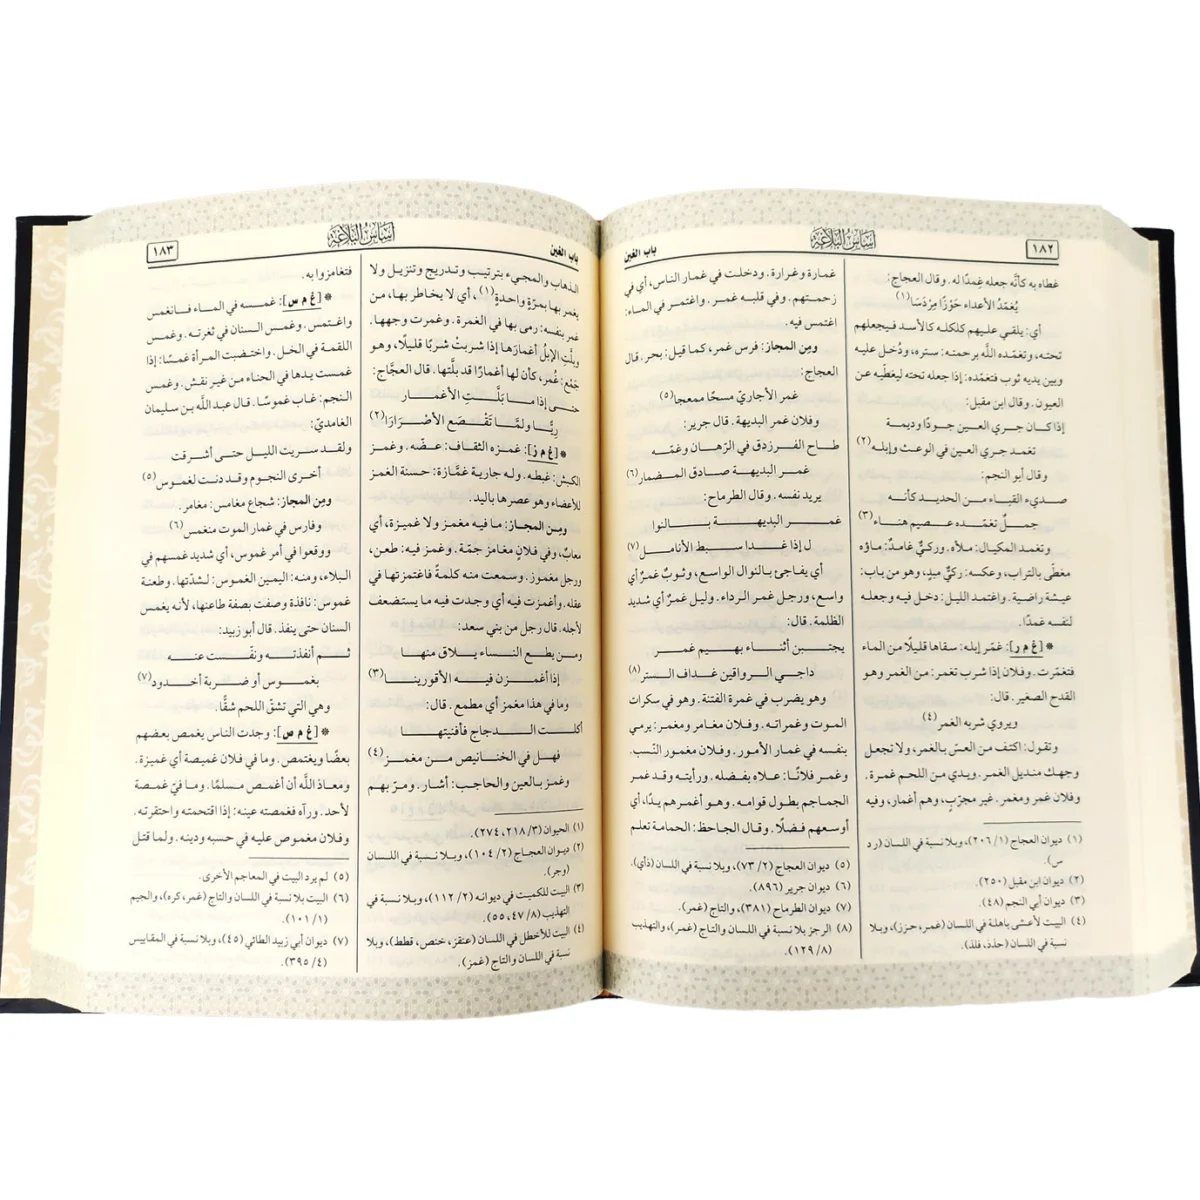 ١٨٢
أساس البلاغة
باب الغين
غطاه به كأنّه جعله غمدًا له. وقال العجاج:
يُغمّدُ الأعداء حَوْزًا مِرْدَسَا(١)
أي: يلقي عليهم كلكله كالأسد فيجعلهم
تحته، وتغمّده اللَّه برحمته: ستره، ودُخل عليه
وبين يديه ثوب فتغمّده: إذا جعله تحته ليغطّيه عن
العيون. وقال ابن مقبل:
إذا كان جري العين جودًا وديمة
تغمد جري العين في الوعث وابله(٢)
وقال أبو النجم:
صديء القباء من الحديد كأنه
جملٌ تغمّده عصيم هناء(٣)
وتغمد المكيال: ملأه. وركيٌّ غامدٌ: ماؤه
مغطّى بالتراب، وعكسه: ركيٌّ مبدٍ، وهو من باب:
عيشة راضية. واغتمد الليل: دخل فيه وجعله
لنفسه غمدًا.
* [غ م ر]: غمّر إبله: سقاها قليلًا من الماء
فتغمّرت. وفلان إذا شرب تغمر: من الغمر وهو
القدح الصغير. قال:
ويروي شربه الغمر(٤)
وتقول: اكتف من العسّ بالغمر، ولا تجعل
وجهك منديل الغمر. ويدي من اللحم غمرة.
وفلان غمر ومغمر: غير مجرّبٍ، وهم أغمار، وفيه
(١) ديوان العجاج (١/ ٢٠٦)، وبلا نسبة في اللسان (رد
س).
(٢) ديوان ابن مقبل (٢٥٠).
(٣) ديوان أبي النجم (٤٨).
(٤) البيت لأعشى باهلة في اللسان (غمر، حزز)، وبلا
نسبة في اللسان (حذذ، فلذ).
غمارة وغرارة. ودخلت في غمار الناس، أي في
زحمتهم. وفي قلبه غمر. واغتمر في الماء:
اغتمس فيه.
ومِن المجاز: فرس غمر، كما قيل: بحر. قال
العجاج:
غمر الأجاريّ مسحًّا ممعجا(٥)
وفلان غمر البديهة. قال جرير:
طاح الفرزدق في الرّهان وغمّه
غمر البديهة صادق المضمار(٦)
يريد نفسه. وقال الطرماح:
غمر البديهة بالنوا
ل إذا غدا سبط الأنامل(٧)
أي يفاجئ بالنوال الواسع، وثوبٌ غمرٌ أي
واسع، ورجل غمر الرداء. وليل غمرٌ أي شديد
الظلمة. قال:
يجتبن أثناء بهيم غمر
داجي الرواقين غداف الستر(٨)
وهو يضرب في غمرة الفتنة، وهو في سكرات
الموت وغمراته. وفلان مغامر ومغمر: يرمي
بنفسه في غمار الأمور. وفلان مغمور النّسب.
وغمر فلانًا: علاه بفضله. ورأيته وقد غمر
الجماجم بطول قوامه. وهو أغمرهم يدًا، أي
أوسعهم فضلًا. وقال الجاحظ: الحمامة تعلم
(٥) ديوان العجاج (٢/ ٧٣)، وبلا نسبة في اللسان (ذأي).
(٦) ديوان جرير (٨٩٦).
(٧) ديوان الطرماح (٣٨١)، والتاج (غمر).
(٨) الرجز بلا نسبة في اللسان والتاج (غمر)، والتهذيب
(٨/ ١٢٩).
باب الغين
أساس البلاغة
١٨٣
الذهاب والمجيء بترتيب وتدريج وتنزيل ولا
يغمر بها بمرّةٍ واحدةٍ(١)، أي لا يخاطر بها، من
غمر بنفسه: رمى بها في الغمرة. وغمرت وجهها.
وبلّت الإبلُ أغمارَها إذا شربتْ شربًا قليلًا، وهو
جَمْع: غُمر، كأن لها أغمارًا قد بلّتها. قال العجّاج:
حتى إذا ما بَلَّتِ الأغمار
رِيًّا ولمَّا تَقْصَعِ الأصْرَارَا(٢)
* [غ م ز]: غمزه الثقاف: عضّه. وغمز
الكبش: غبطه. وله جارية غمّازة: حسنة الغمز
للأعضاء وهو عصرها باليد.
ومِن المجاز: ما فيه مغمز ولا غميزة، أي
معابٌ، وفي فلان مغامز جمّة. وغمز فيه: طعن،
ورجل مغموز. وسمعت منه كلمةً فاغتمزتها في
عقله. وأغمزت فيه أي وجدت فيه ما يستضعف
لأجله. قال رجل من بني سعد:
ومن يطع النساء يلاق منها
إذا أغمزن فيه الأقورينا(٣)
وما في هذا مغمز أي مطمع. قال:
أكلت الدجاج فأفنيتها
فهل في الخنانيص من مغمز(٤)
وغمز بالعين والحاجب: أشار. ومرّ بهم
(١) الحيوان (٣/ ٢١٨، ٢٧٤).
(٢) ديوان العجاج (٢/ ١٠٤)، وبلا نسبة في اللسان
(وجر).
(٣) البيت للكميت في ديوانه (٢/ ١١٢)، وبلا نسبة في
التهذيب (٨/ ٤٧، ٥٥).
(٤) البيت للأخطل في اللسان (عنقز، خنص، قطط)، وبلا
نسبة في اللسان والتاج (غمز).
فتغامزوا به.
* [غ م س]: غمسه في الماء فانغمس
واغتمس. وغمس السنان في ثغرته. وغمس
اللقمة في الخل. واختضبت المرأة غمسًا: إذا
غمست يدها في الحناء من غير نقش. وغمس
النجم: غاب غموسًا. قال عبد اللَّه بن سليمان
الغامديّ:
ولقد سريت الليل حتى أشرقت
أخرى النجوم وقد دنت لغموس(٥)
ومِن المجاز: شجاع مغامس: مغامر.
وفارس في غمار الموت منغمس(٦)
ووقعوا في أمر غموس، أي شديد غمسهم في
البلاء، ومنه: اليمين الغموس: لشدّتها. وطعنة
غموس: نافذة وصفت بصفة طاعنها، لأنه يغمس
السنان حتى ينفذ. قال أبو زبيد:
ثم أنفذته ونفّست عنه
بغموس أو ضربة أخدود(٧)
وهي التي تشقّ اللحم شقًّا.
* [غ م ص]: وجدت الناس يغمص بعضهم
بعضًا ويغتمص. وما في فلان غميصة أي غميزة.
ومعاذ اللَّه أن أغمص مسلمًا. وما فيّ غمصة
لأحد. ورآه فغمصته عينه: إذا اقتحمته واحتقرته.
وفلان مغموص عليه في حسبه ودينه. ولما قتل
(٥) لم يرد البيت في المعاجم الأخرى.
(٦) البيت بلا نسبة في اللسان والتاج (غمر، كره)، والجيم
(١/ ١٠١).
(٧) ديوان أبي زبيد الطائي (٤٥)، وبلا نسبة في المقاييس
(٤/ ٣٩٥).